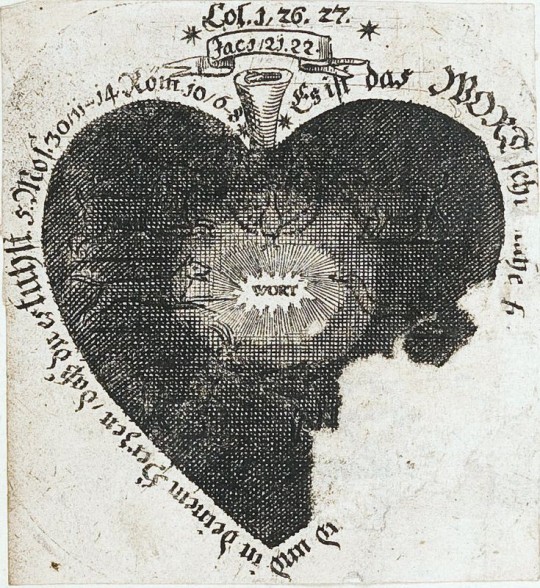 Col. 1, 26. 27.
Jac 1/21.22.
Es ist das WORT sehr nahe
und in deinem Herzen/ daß du es tuhst. 5. Mos. 30/11-14. Rom 10/6.8
WORT